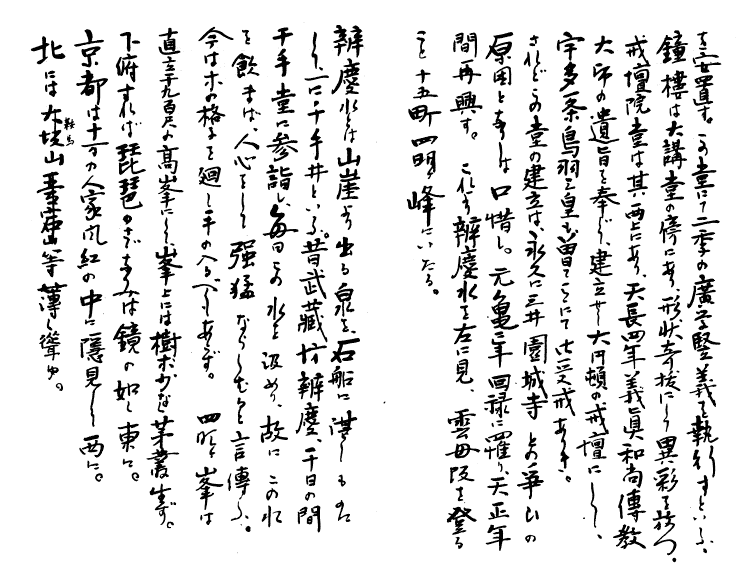 を安置す。この堂にて二季の廣学竪義を執行すといふ。
鐘樓は大講堂の傍にあり、形状奇拔にして異彩を放つ。
戒壇院堂は其西上にあり、天長四年義眞和尚傳教
大師の遺旨を奉じ、建立せし大円頓の戒壇にして、
宇多条鳥羽三皇も曽てこゝにて は受戒ありき。
されどこの堂の建立は、永久に三井園城寺との爭ひの
原因となりしは口惜し。元亀二年回禄に罹り、天正年
間再興す。これより辨慶水を左に見、雲母阪を登る
こと十五町四明峰にいたる。
辨慶水とは山崖より出る泉を、石船に湛しものに
して、一に千手井といふ。昔武藏坊辨慶、千日の間
千手堂に参詣し、毎日この水を汲めり、故にこの水
を飲まば、人心をして強猛ならしむると言傳ふ。
今は木の格子を廻し手の入るべくもあらず。四明峯は
直立千九百尺の高峯にして、峯上には樹木少なく茅叢生ず。
下俯すれば琵琶のさざなみは鏡の如く東に。
京都は十万の人家風紅の中に隠見して西に。
北には大 山鞍馬 山等薄く聳ゆ。